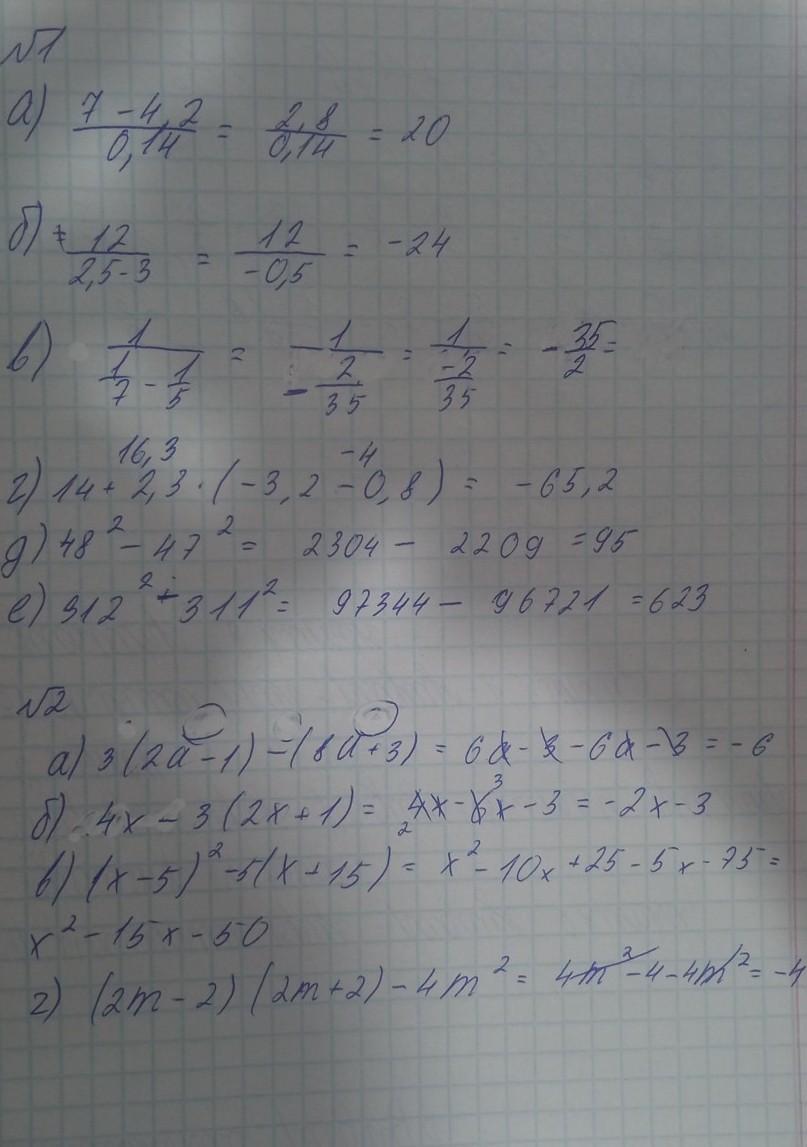 №1
а) (7 - 4,2)/0,14 = 2,8/0,14 = 20
б) 12/(2,5-3) = 12/(-0,5) = -24
в) 1/(1/7 - 1/5) = 1/(-2/35) = 1/(-2/35) = -35/2 =
16,3 -4
г) 14 + 2,3 · (-3,2 - 0,8) = -65,2
д) 48² - 47² = 2304 - 2209 = 95
е) 312² - 311² = 97344 - 96721 = 623
№2
а) 3(2a - 1) - (8a + 3) = 6a - 3 - 6a - 3 = -6
б) 4x - 3(2x + 1) = 4x - 6x - 3 = -2x - 3
в) (x - 5)² - 5(x + 15) = x² - 10x + 25 - 5x - 75 =
x² - 15x - 50
г) (2m - 2)(2m + 2) - 4m² = 4m² - 4 - 4m² = -4